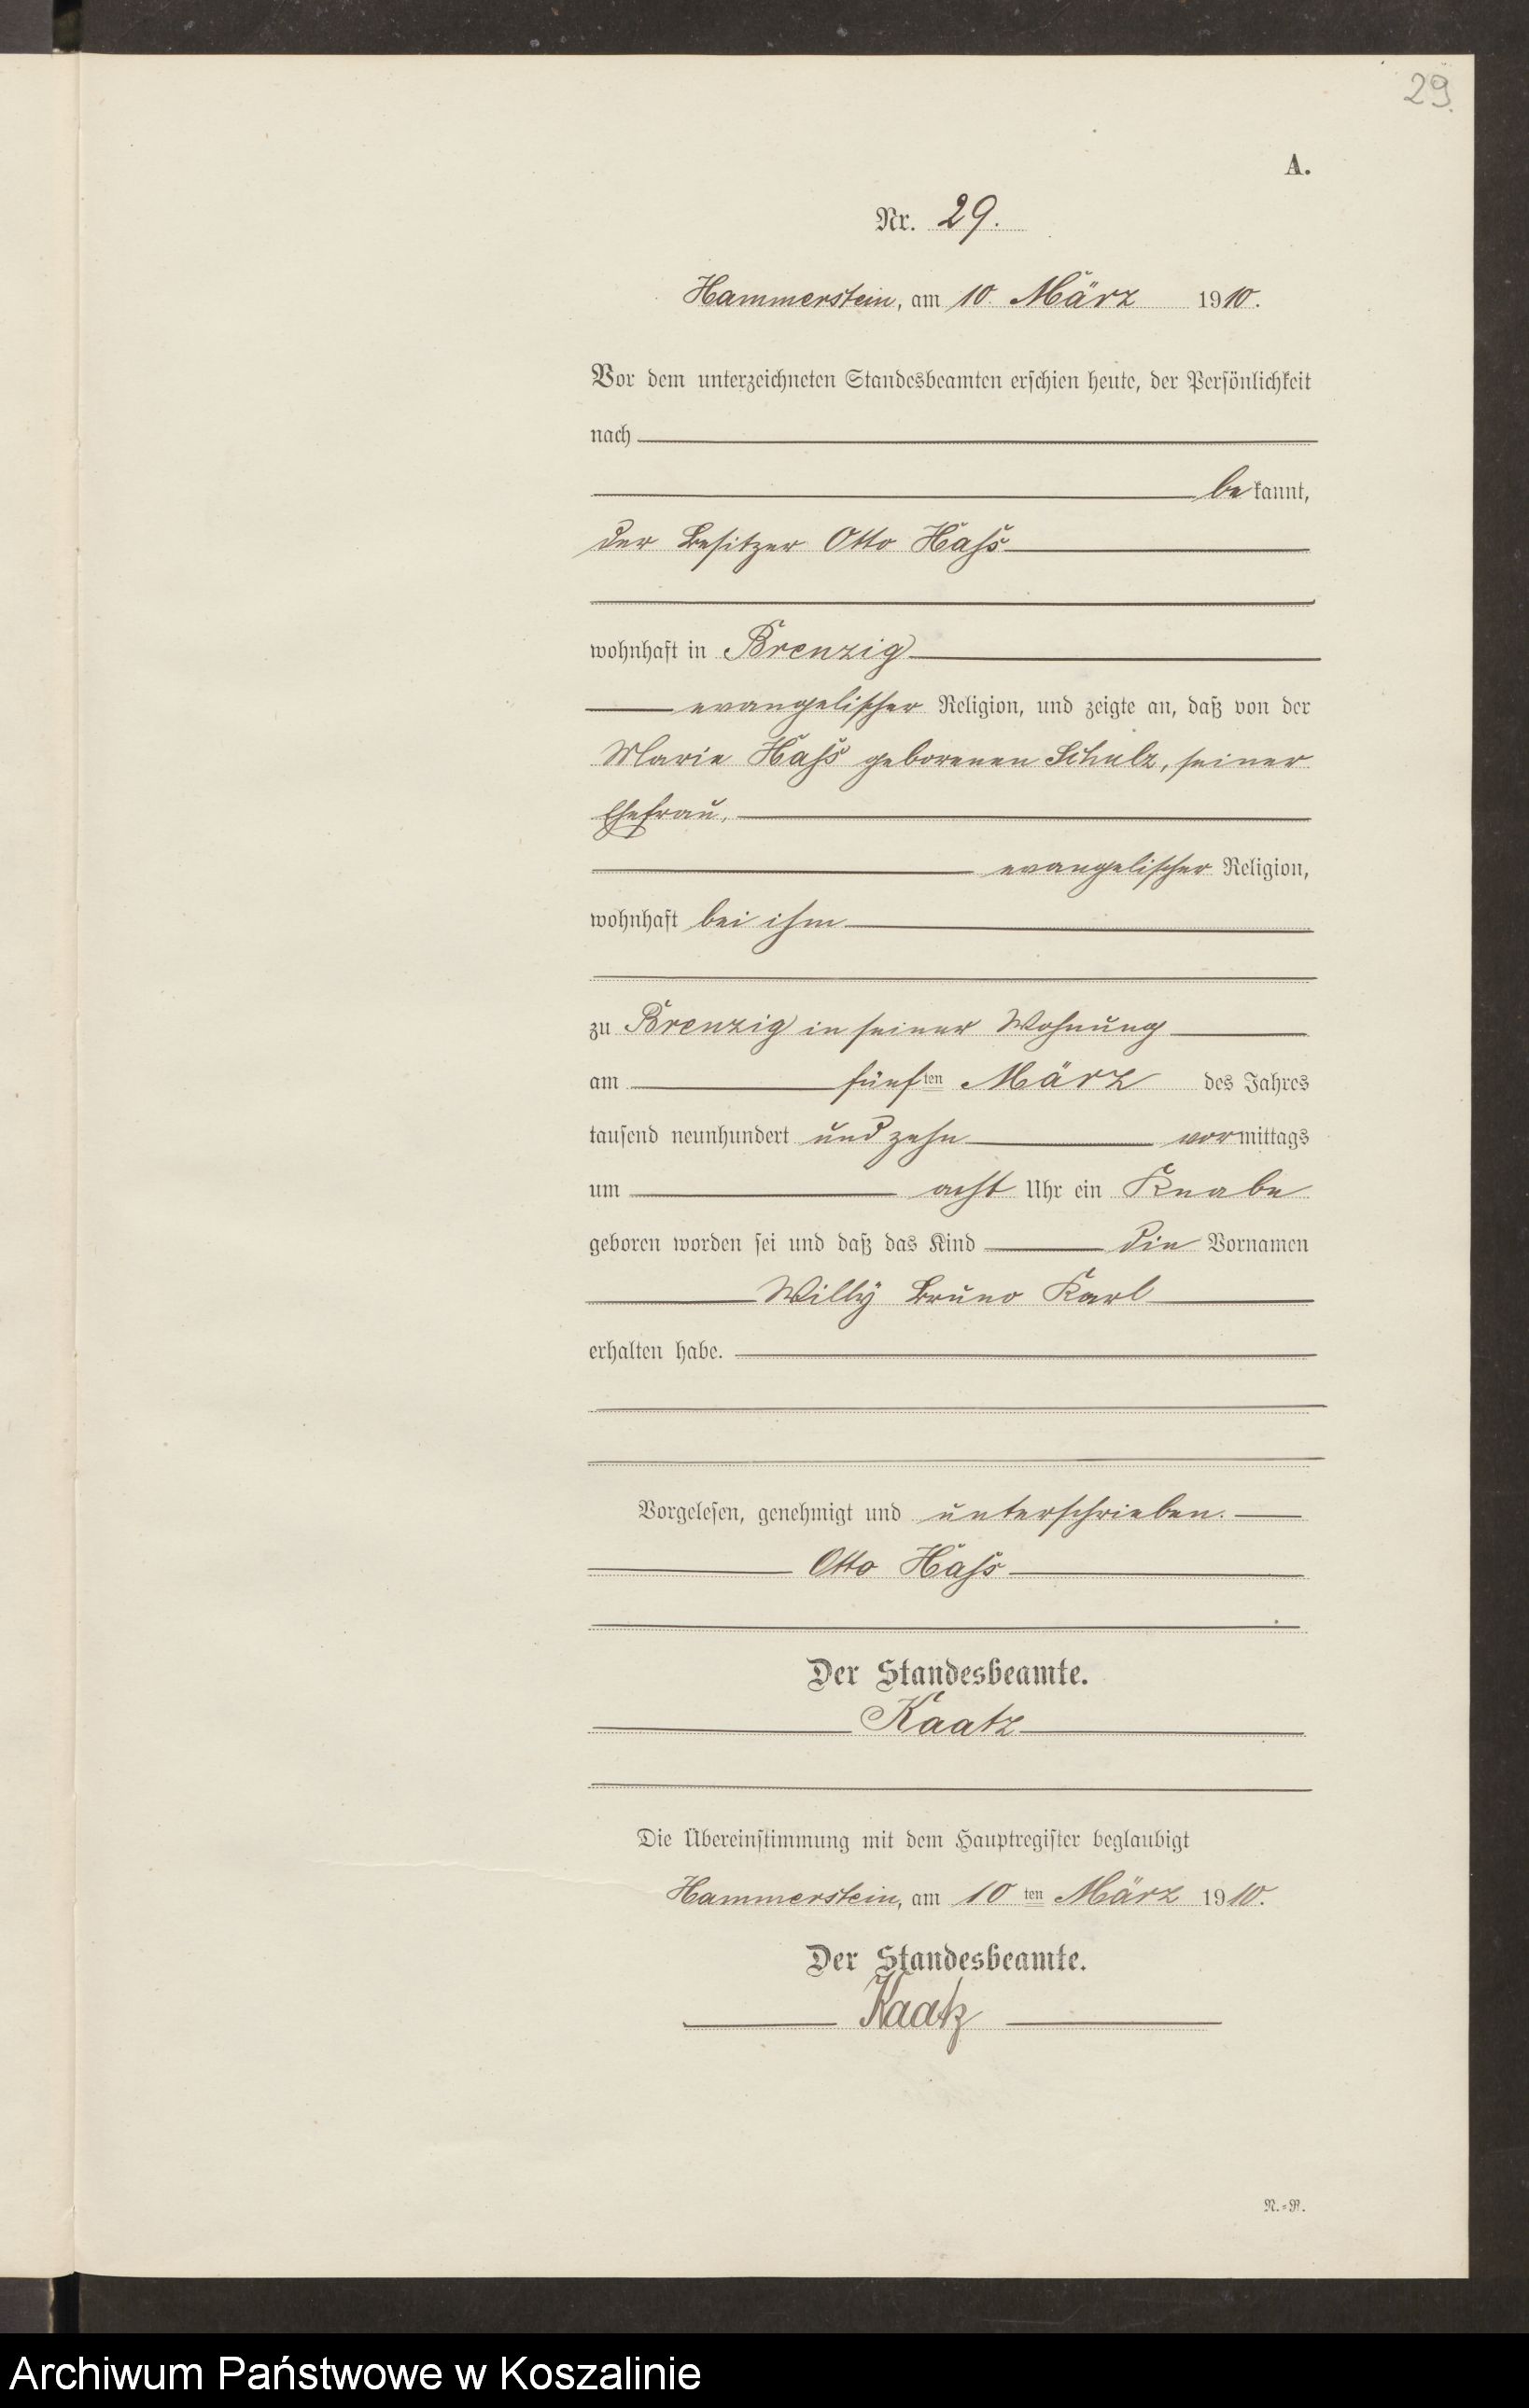 29.
A.
Nr. 29.
Hammerstein, am 10 März 1910.
Vor dem unterzeichneten Standesbeamten erschien heute, der Persönlichkeit
nach
bekannt,
der Besitzer Otto Hass
wohnhaft in Brenzig
evangelischer Religion, und zeigte an, daß von der
Marie Hass geborenen Schulz, seiner
Ehefrau,
evangelischer Religion,
wohnhaft bei ihm
zu Brenzig in seiner Wohnung
am fünften März des Jahres
tausend neunhundert und zehn vormittags
um acht Uhr ein Knabe
geboren worden sei und daß das Kind die Vornamen
Willÿ Bruno Karl
erhalten habe.
Vorgelesen, genehmigt und unterschrieben.
Otto Hass
Der Standesbeamte.
Kaatz
Die Übereinstimmung mit dem Hauptregister beglaubigt
Hammerstein, am 10 ten März 1910.
Der Standesbeamte.
Kaatz
N.=R.
Archiwum Państwowe w Koszalinie